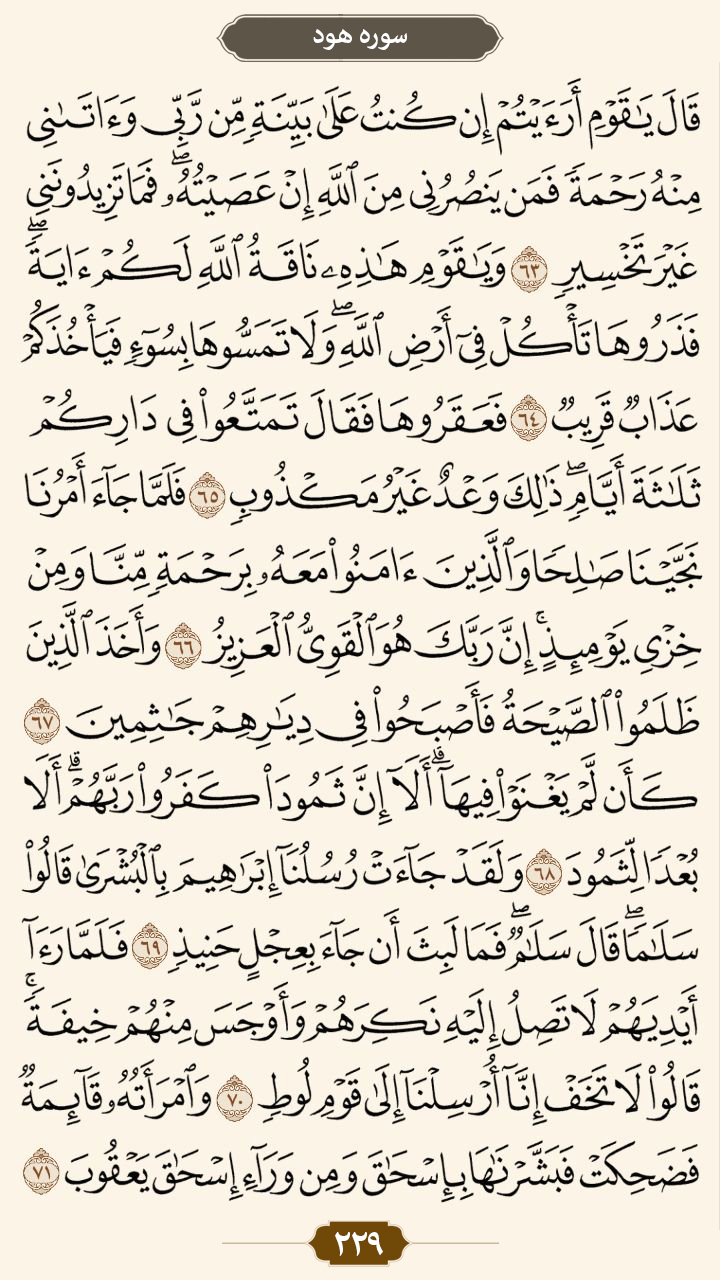 سوره هود
قَالَ يَـٰقَوْمِ أَرَءَيْتُمْ إِن كُنتُ عَلَىٰ بَيِّنَةٍ مِّن رَّبِّى وَءَاتَىٰنِى
مِنْهُ رَحْمَةً فَمَن يَنصُرُنِى مِنَ ٱللَّهِ إِنْ عَصَيْتُهُۥ ۖ فَمَا تَزِيدُونَنِى
غَيْرَ تَخْسِيرٍ ٦٣ وَيَـٰقَوْمِ هَـٰذِهِۦ نَاقَةُ ٱللَّهِ لَكُمْ ءَايَةً ۖ
فَذَرُوهَا تَأْكُلْ فِىٓ أَرْضِ ٱللَّهِ ۖ وَلَا تَمَسُّوهَا بِسُوٓءٍ فَيَأْخُذَكُمْ
عَذَابٌ قَرِيبٌ ٦٤ فَعَقَرُوهَا فَقَالَ تَمَتَّعُوا۟ فِى دَارِكُمْ
ثَلَـٰثَةَ أَيَّامٍ ۖ ذَٰلِكَ وَعْدٌ غَيْرُ مَكْذُوبٍ ٦٥ فَلَمَّا جَآءَ أَمْرُنَا
نَجَّيْنَا صَـٰلِحًا وَٱلَّذِينَ ءَامَنُوا۟ مَعَهُۥ بِرَحْمَةٍ مِّنَّا وَمِنْ
خِزْىِ يَوْمِئِذٍ ۚ إِنَّ رَبَّكَ هُوَ ٱلْقَوِىُّ ٱلْعَزِيزُ ٦٦ وَأَخَذَ ٱلَّذِينَ
ظَلَمُوا۟ ٱلصَّيْحَةُ فَأَصْبَحُوا۟ فِى دِيَـٰرِهِمْ جَـٰثِمِينَ ٦٧
كَأَن لَّمْ يَغْنَوْا۟ فِيهَآ ۗ أَلَآ إِنَّ ثَمُودَا۟ كَفَرُوا۟ رَبَّهُمْ ۗ أَلَا
بُعْدًا لِّثَمُودَ ٦٨ وَلَقَدْ جَآءَتْ رُسُلُنَآ إِبْرَٰهِيمَ بِٱلْبُشْرَىٰ قَالُوا۟
سَلَـٰمًا ۖ قَالَ سَلَـٰمٌ ۖ فَمَا لَبِثَ أَن جَآءَ بِعِجْلٍ حَنِيذٍ ٦٩ فَلَمَّا رَءَآ
أَيْدِيَهُمْ لَا تَصِلُ إِلَيْهِ نَكِرَهُمْ وَأَوْجَسَ مِنْهُمْ خِيفَةً ۚ
قَالُوا۟ لَا تَخَفْ إِنَّآ أُرْسِلْنَآ إِلَىٰ قَوْمِ لُوطٍ ٧٠ وَٱمْرَأَتُهُۥ قَآئِمَةٌ
فَضَحِكَتْ فَبَشَّرْنَـٰهَا بِإِسْحَـٰقَ وَمِن وَرَآءِ إِسْحَـٰقَ يَعْقُوبَ ٧١
٢٢٩